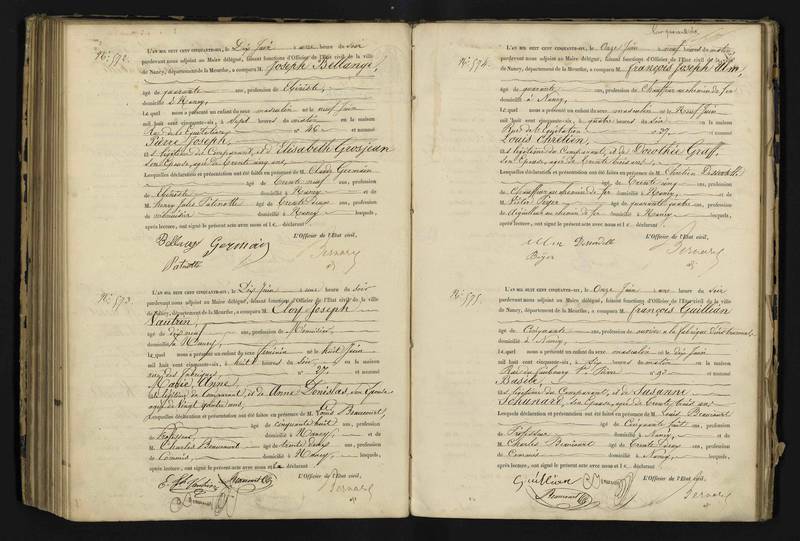 N°. 572.
L'AN MIL HUIT CENT CINQUANTE-SIX, le Dix Juin à une heure du Soir
pardevant nous adjoint au Maire délégué, faisant fonctions d'Officier de l'Etat civil de la ville
de Nancy, département de la Meurthe, a comparu M. Joseph Bellange,
âgé de quarante ans, profession de Ebéniste,
domicilié à Nancy,
Lequel nous a présenté un enfant du sexe masculin né le neuf Juin
mil huit cent cinquante-six, à Sept heures du matin en la maison
Rue de l'Equitation n° 46 et nommé
Pierre Joseph,
fils légitime du Comparant, et de Elisabeth Grosjean
Son Epouse, agée de Trente cinq ans,
Lesquelles déclaration et présentation ont été faites en présence de M. Claude Germain
âgé de Trente-neuf ans, profession
de Ebéniste domicilié à Nancy et de
M. Henry Jules Patenotte âgé de Trente deux ans, profession
de menuisier domicilié à Nancy lesquels,
après lecture, ont signé le présent acte avec nous et le déclarant
L'Officier de l'Etat civil,
Bellange Germain
Patenotte
Bernard
N°. 573.
L'AN MIL HUIT CENT CINQUANTE-SIX, le Dix Juin à une heure du Soir
pardevant nous adjoint au Maire délégué, faisant fonctions d'Officier de l'Etat civil de la ville
de Nancy, département de la Meurthe, a comparu M. Eloy Joseph
Vautrin,
ans, profession de Menuisier
domicilié à Nancy,
Lequel nous a présenté un enfant du sexe féminin né le huit Juin
mil huit cent cinquante-six, à huit heures du Soir, en la maison
rue des fabriques n° 27. et nommé
Marie Anne,
fille légitime du Comparant, et de Anne Denislas, son Epouse
agée de Vingt quatre ans,
Lesquelles déclaration et présentation ont été faites en présence de M. Louis Beaucourt
âgé de cinquante huit ans, profession
de Professeur domicilié à Nancy, et de
M. Charles Beaucourt âgé de trente deux ans, profession
de Commis domicilié à Nancy, lesquels,
après lecture, ont signé le présent acte avec nous et le déclarant
L'Officier de l'Etat civil,
Bernard
N°. 574.
L'AN MIL HUIT CENT CINQUANTE-SIX, le Onze Juin à neuf heures du matin
pardevant nous adjoint au Maire délégué, faisant fonctions d'Officier de l'Etat civil de la ville
de Nancy, département de la Meurthe, a comparu M. françois Joseph Ulm,
âgé de quarante ans, profession de Chauffeur au chemin de fer
domicilié à Nancy,
Lequel nous a présenté un enfant du sexe masculin né le Neuf Juin
mil huit cent cinquante-six, à quatre heures du Soir en la maison
Rue de l'équitation n° 27. et nommé
Louis Chrétien,
fils légitime du Comparant, et de Dorothée Graff,
Son Epouse, agée de Trente trois ans
Lesquelles déclaration et présentation ont été faites en présence de M. Chrétien
âgé de Trente cinq ans, profession
de Chauffeur au chemin de fer domicilié à Nancy, et de
M. Victor âgé de quarante quatre ans, profession
de Aiguilleur au chemin de fer domicilié à Nancy lesquels,
après lecture, ont signé le présent acte avec nous et le déclarant
L'Officier de l'Etat civil,
Ulm
Bernard
N°. 575.
L'AN MIL HUIT CENT CINQUANTE-SIX, le Onze Juin à une heure du Soir
pardevant nous adjoint au Maire délégué, faisant fonctions d'Officier de l'Etat civil de la ville
de Nancy, département de la Meurthe, a comparu M. françois Guillian
âgé de Cinquante ans, profession de
domicilié à Nancy,
Lequel nous a présenté un enfant du sexe masculin né le dix Juin
mil huit cent cinquante-six, à Dix heures du matin en la maison
Rue du faubourg St. Pierre n° 93 et nommé
Basile,
fils légitime du Comparant, et de Susanne
son Epouse, agée de Trente trois ans
Lesquelles déclaration et présentation ont été faites en présence de M. Louis Beaucourt
âgé de Cinquante huit ans, profession
de Professeur domicilié à Nancy, et de
M. Charles Beaucourt âgé de Trente Deux ans, profession
de Commis domicilié à Nancy, lesquels,
après lecture, ont signé le présent acte avec nous et le déclarant
L'Officier de l'Etat civil,
Guillian
Bernard